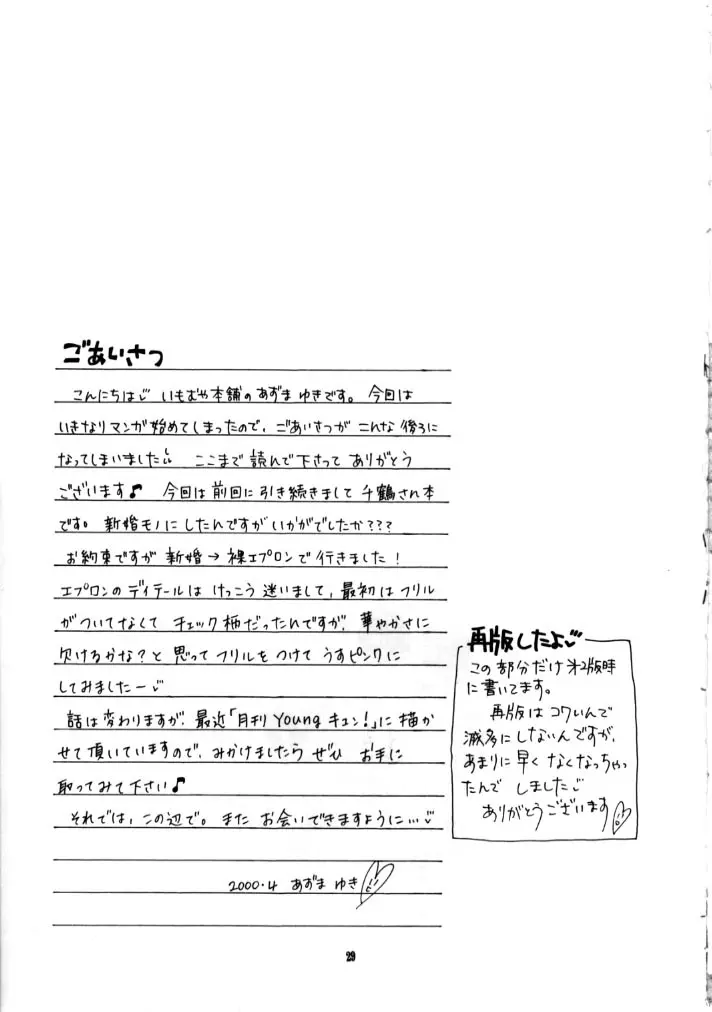 ごあいさつ
こんにちは いもむや本舗のあずまゆきです。今回は
いきなりマンガ始めてしまったので、ごあいさつが こんな後ろに
なってしまいました ここまで読んで下さって ありがとう
ございます♪ 今回は前回に引き続きまして千鶴さん本
です。新婚モノにしたんですがいかがでしたか???
お約束ですが 新婚→裸エプロンで行きました!
エプロンのディテールは けっこう迷いまして、最初はフリル
がついてなくて チェック柄だったんですが、華やかさに
欠けるかな?と思ってフリルをつけて うすピンクに
してみましたー
話は変わりますが、最近「月刊Youngキュン!」に描か
せて頂いていますので、みかけましたら ぜひ お手に
取ってみて下さい♪
それでは、この辺で。また お会いできますように…
2000.4 あずま ゆき
再版したよ
この部分だけ第2版時
に書いてます。
再版はコワいんで
滅多にしないんですが、
あまりに早くなくなっちゃっ
たんで しました
ありがとうございます
29